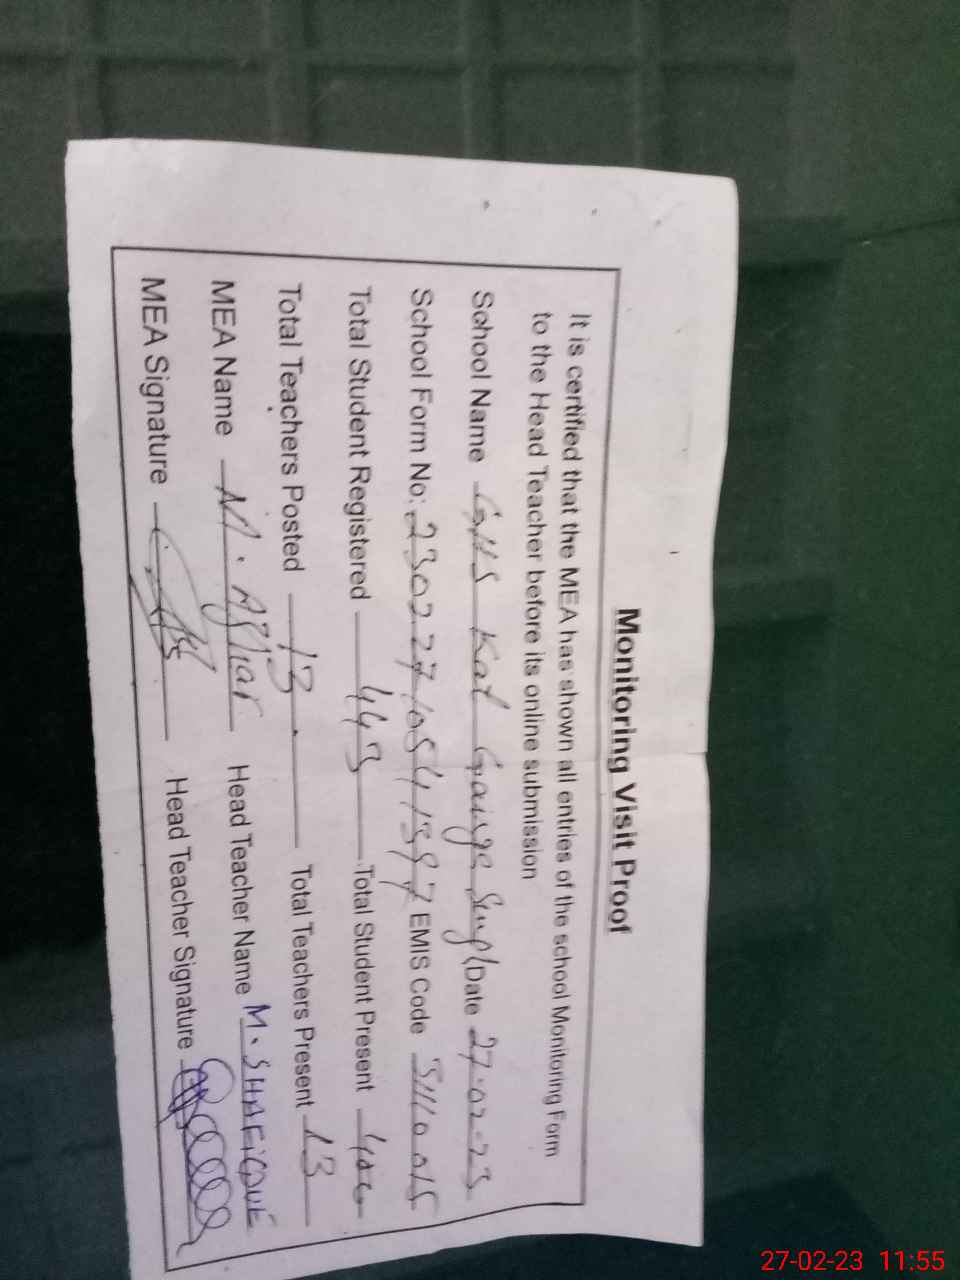 Monitoring Visit Proof
It is certified that the MEA has shown all entries of the school Monitoring Form
to the Head Teacher before its online submission
School Name GHS Kot Date 27-02-23
School Form No: 23022710541397 EMIS Code
Total Student Registered 443 Total Student Present
Total Teachers Posted 13 Total Teachers Present 13
MEA Name M. Azhar Head Teacher Name M. SHAFIQUE
MEA Signature Head Teacher Signature
27-02-23 11:55